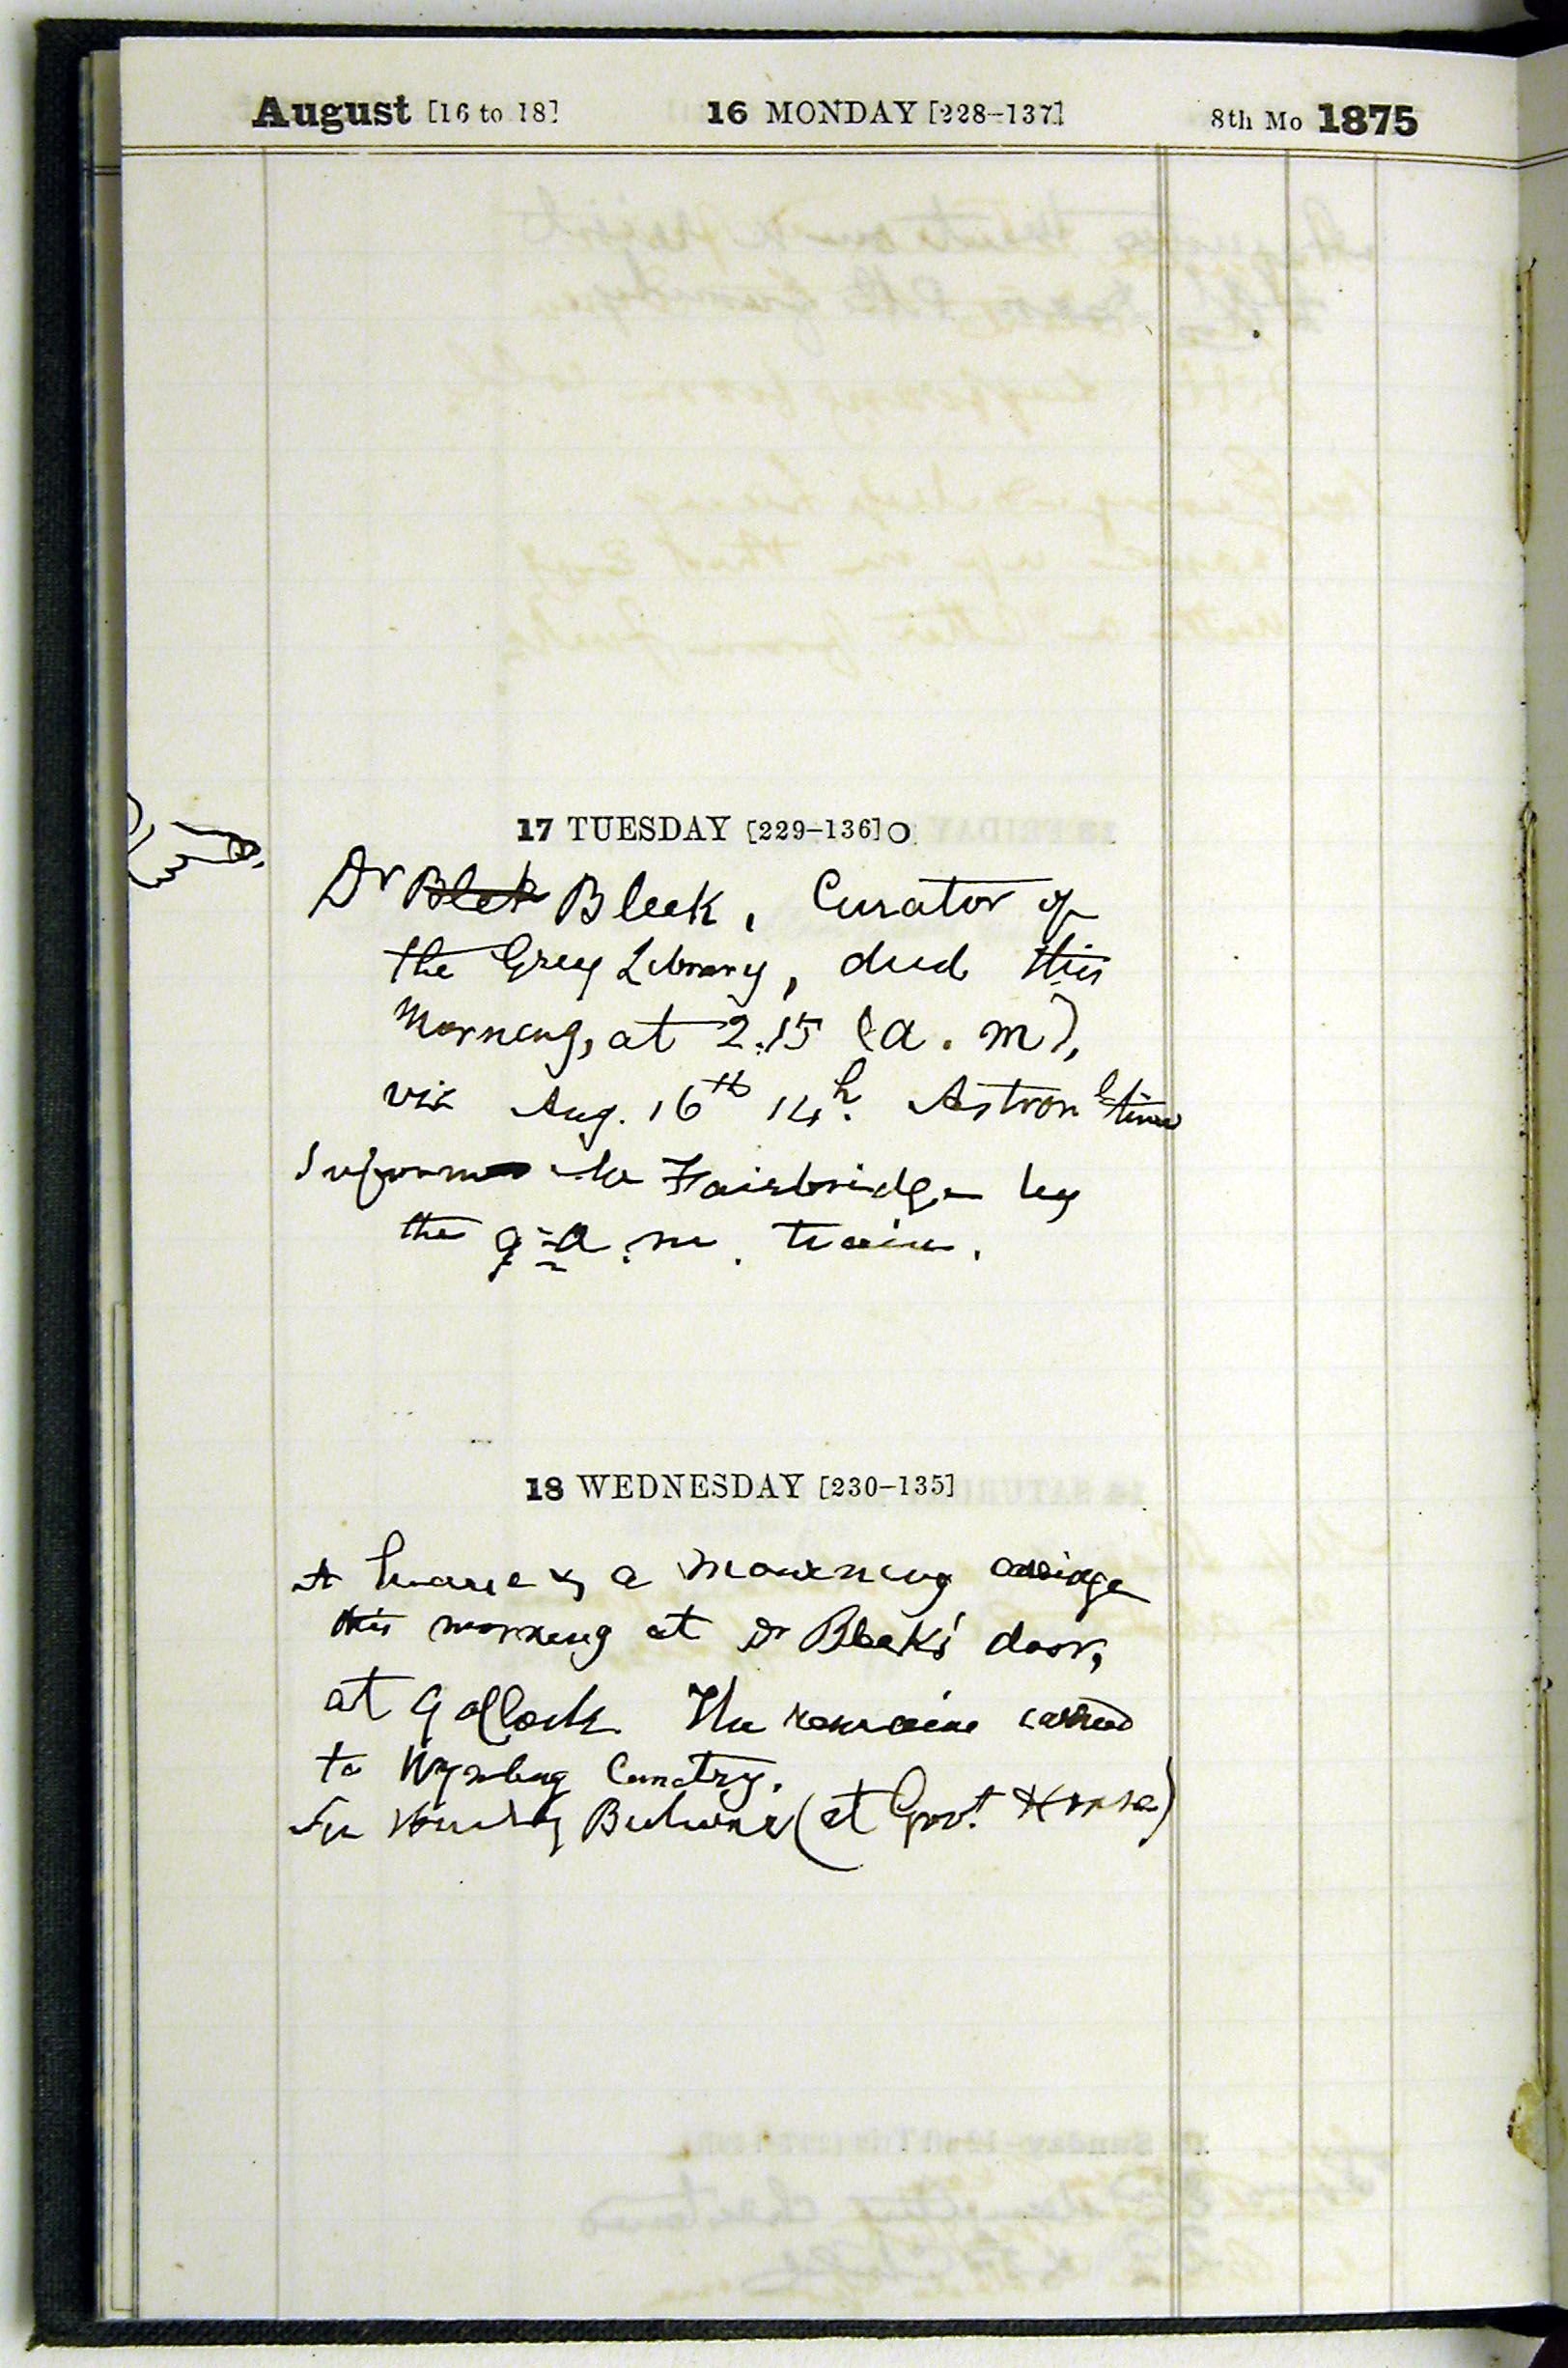 August [16 to 18] 16 MONDAY [228-137] 8th Mo 1875
17 TUESDAY [229-136]
Dr Blek Bleek, Curator of
the Grey Library, died this
morning, at 2.15 (a.m),
viz Aug. 16th 14h. Astronl time
Inform Mr Fairbridge by
the 9 a.m. train.
18 WEDNESDAY [230-135]
A hearse & a mourning carriage
this morning at Dr Bleek's door,
at 9 oClock. The remains carried
to Wynberg Cemetry.
Sir Henry Bulwer (at Govt House)